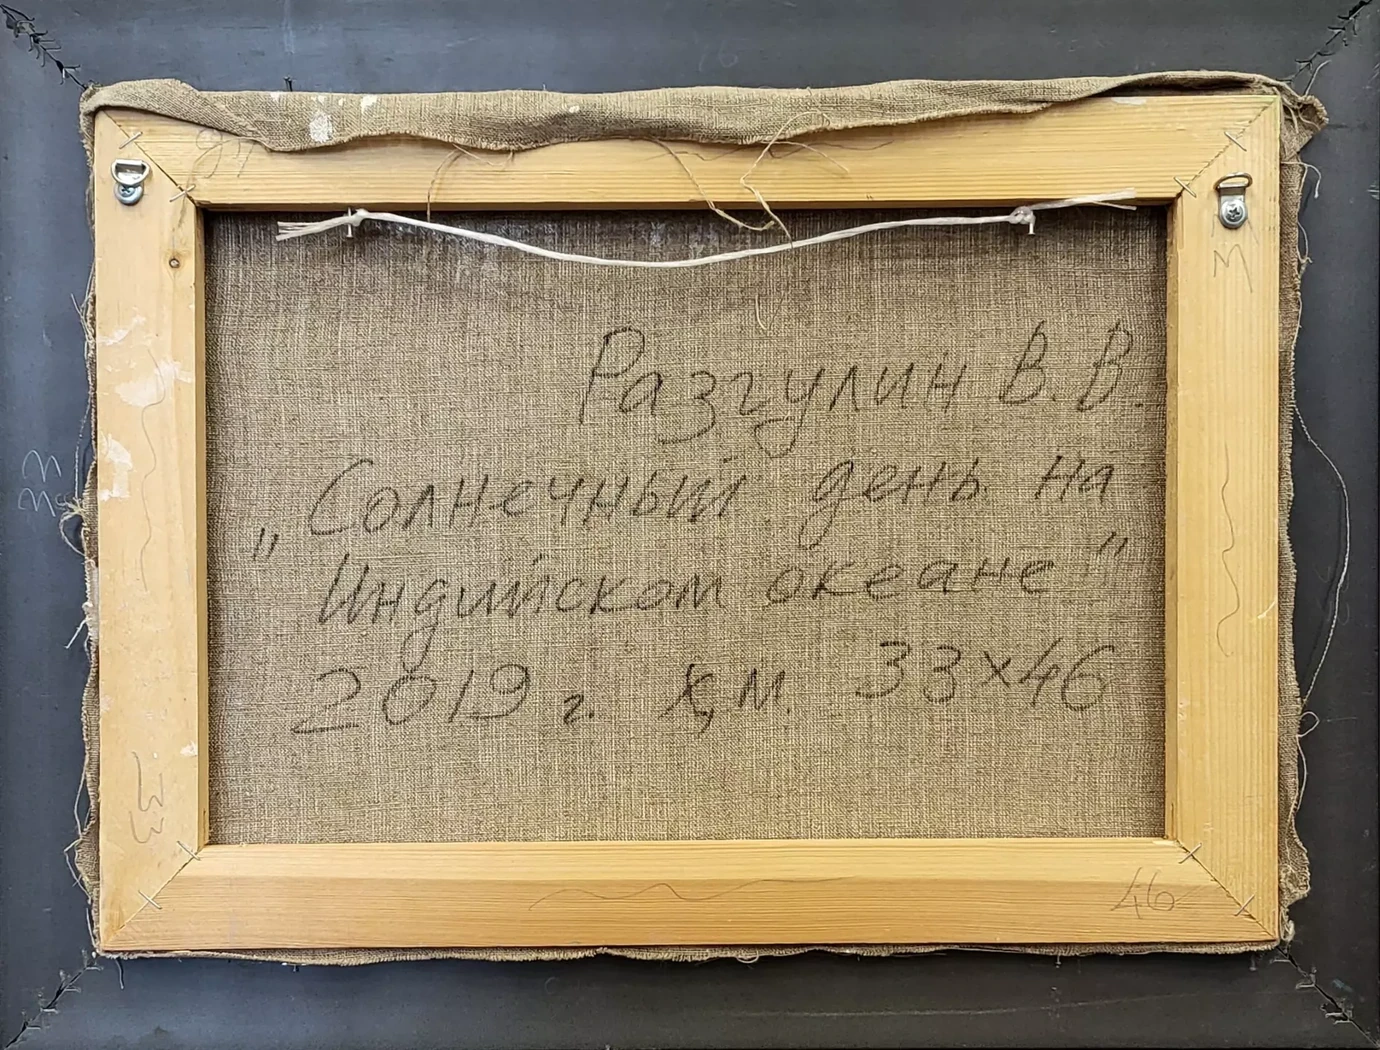 Разгулин В. В.
„Солнечный день на
Индийском океане"
2019 г. х,м. 33х46
33
46